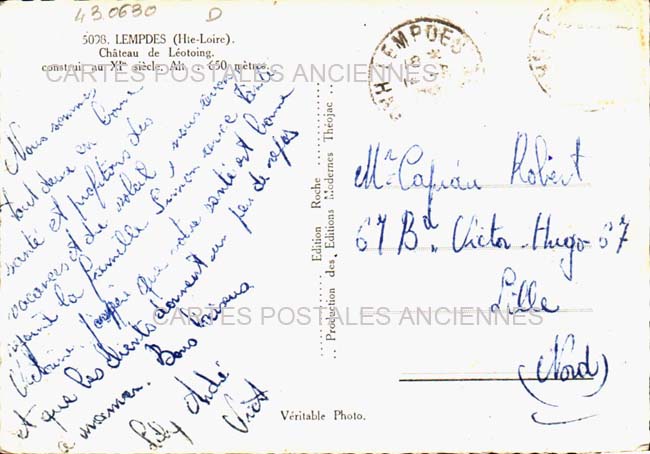 430630 D
5078. LEMPDES (Hte-Loire).
Château de Léotoing.
construit au XIe siècle. Alt : 650 mètres.
CARTES POSTALES ANCIENNES
Nous sommes
tout deux en bonne
santé et profitons des
vacances et du soleil, nous avons
rejoint la famille Simon avec Tante
Victorine, j'espère que votre santé est bonne
et que les clients donnent un peu de repos
a maman. Bons baisers
Lily André
LEMPDES
Edition Roche
Production des Editions Modernes Théojac
Mr Capiau Robert
67 Bd Victor-Hugo 67
Lille
(Nord)
CARTES POSTALES ANCIENNES
Véritable Photo.